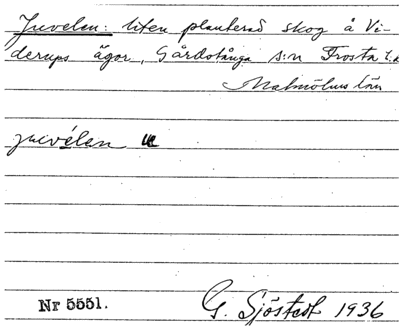 Juvelen: liten planterad skog å Vi-
derups ägor, Gårdstånga s:n Frosta h.d
Malmöhus län
juvélen
Nr 5551. G. Sjöstedt 1936